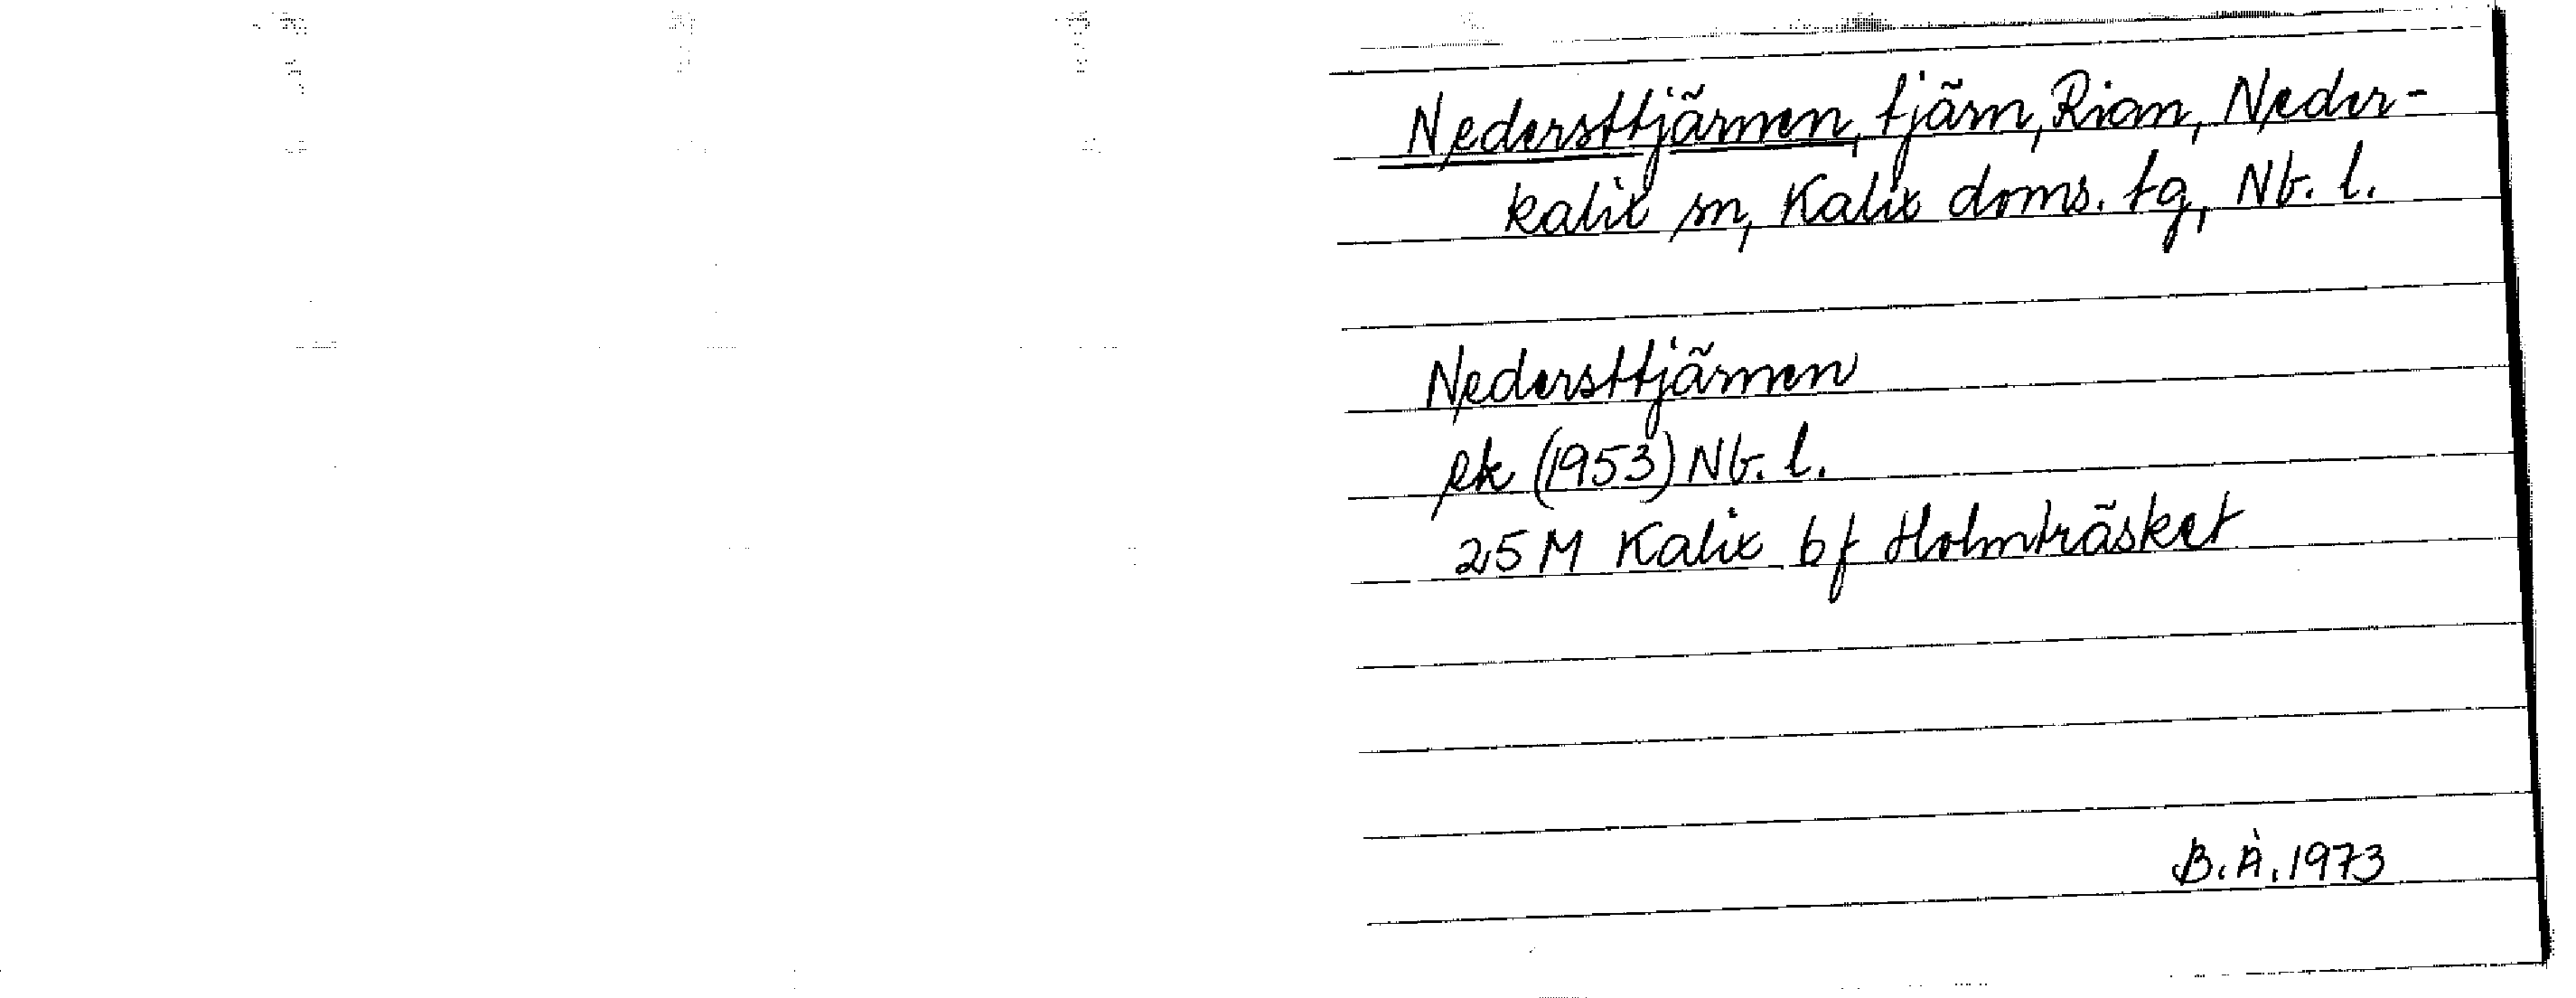 Nedersttjärnen, tjärn, Rian, Neder-
kalix sn, Kalix doms. tg, Nb. l.
Nedersttjärnen
ek (1953) Nb. l.
25 M Kalix bf Holmträsket
B.Å.1973